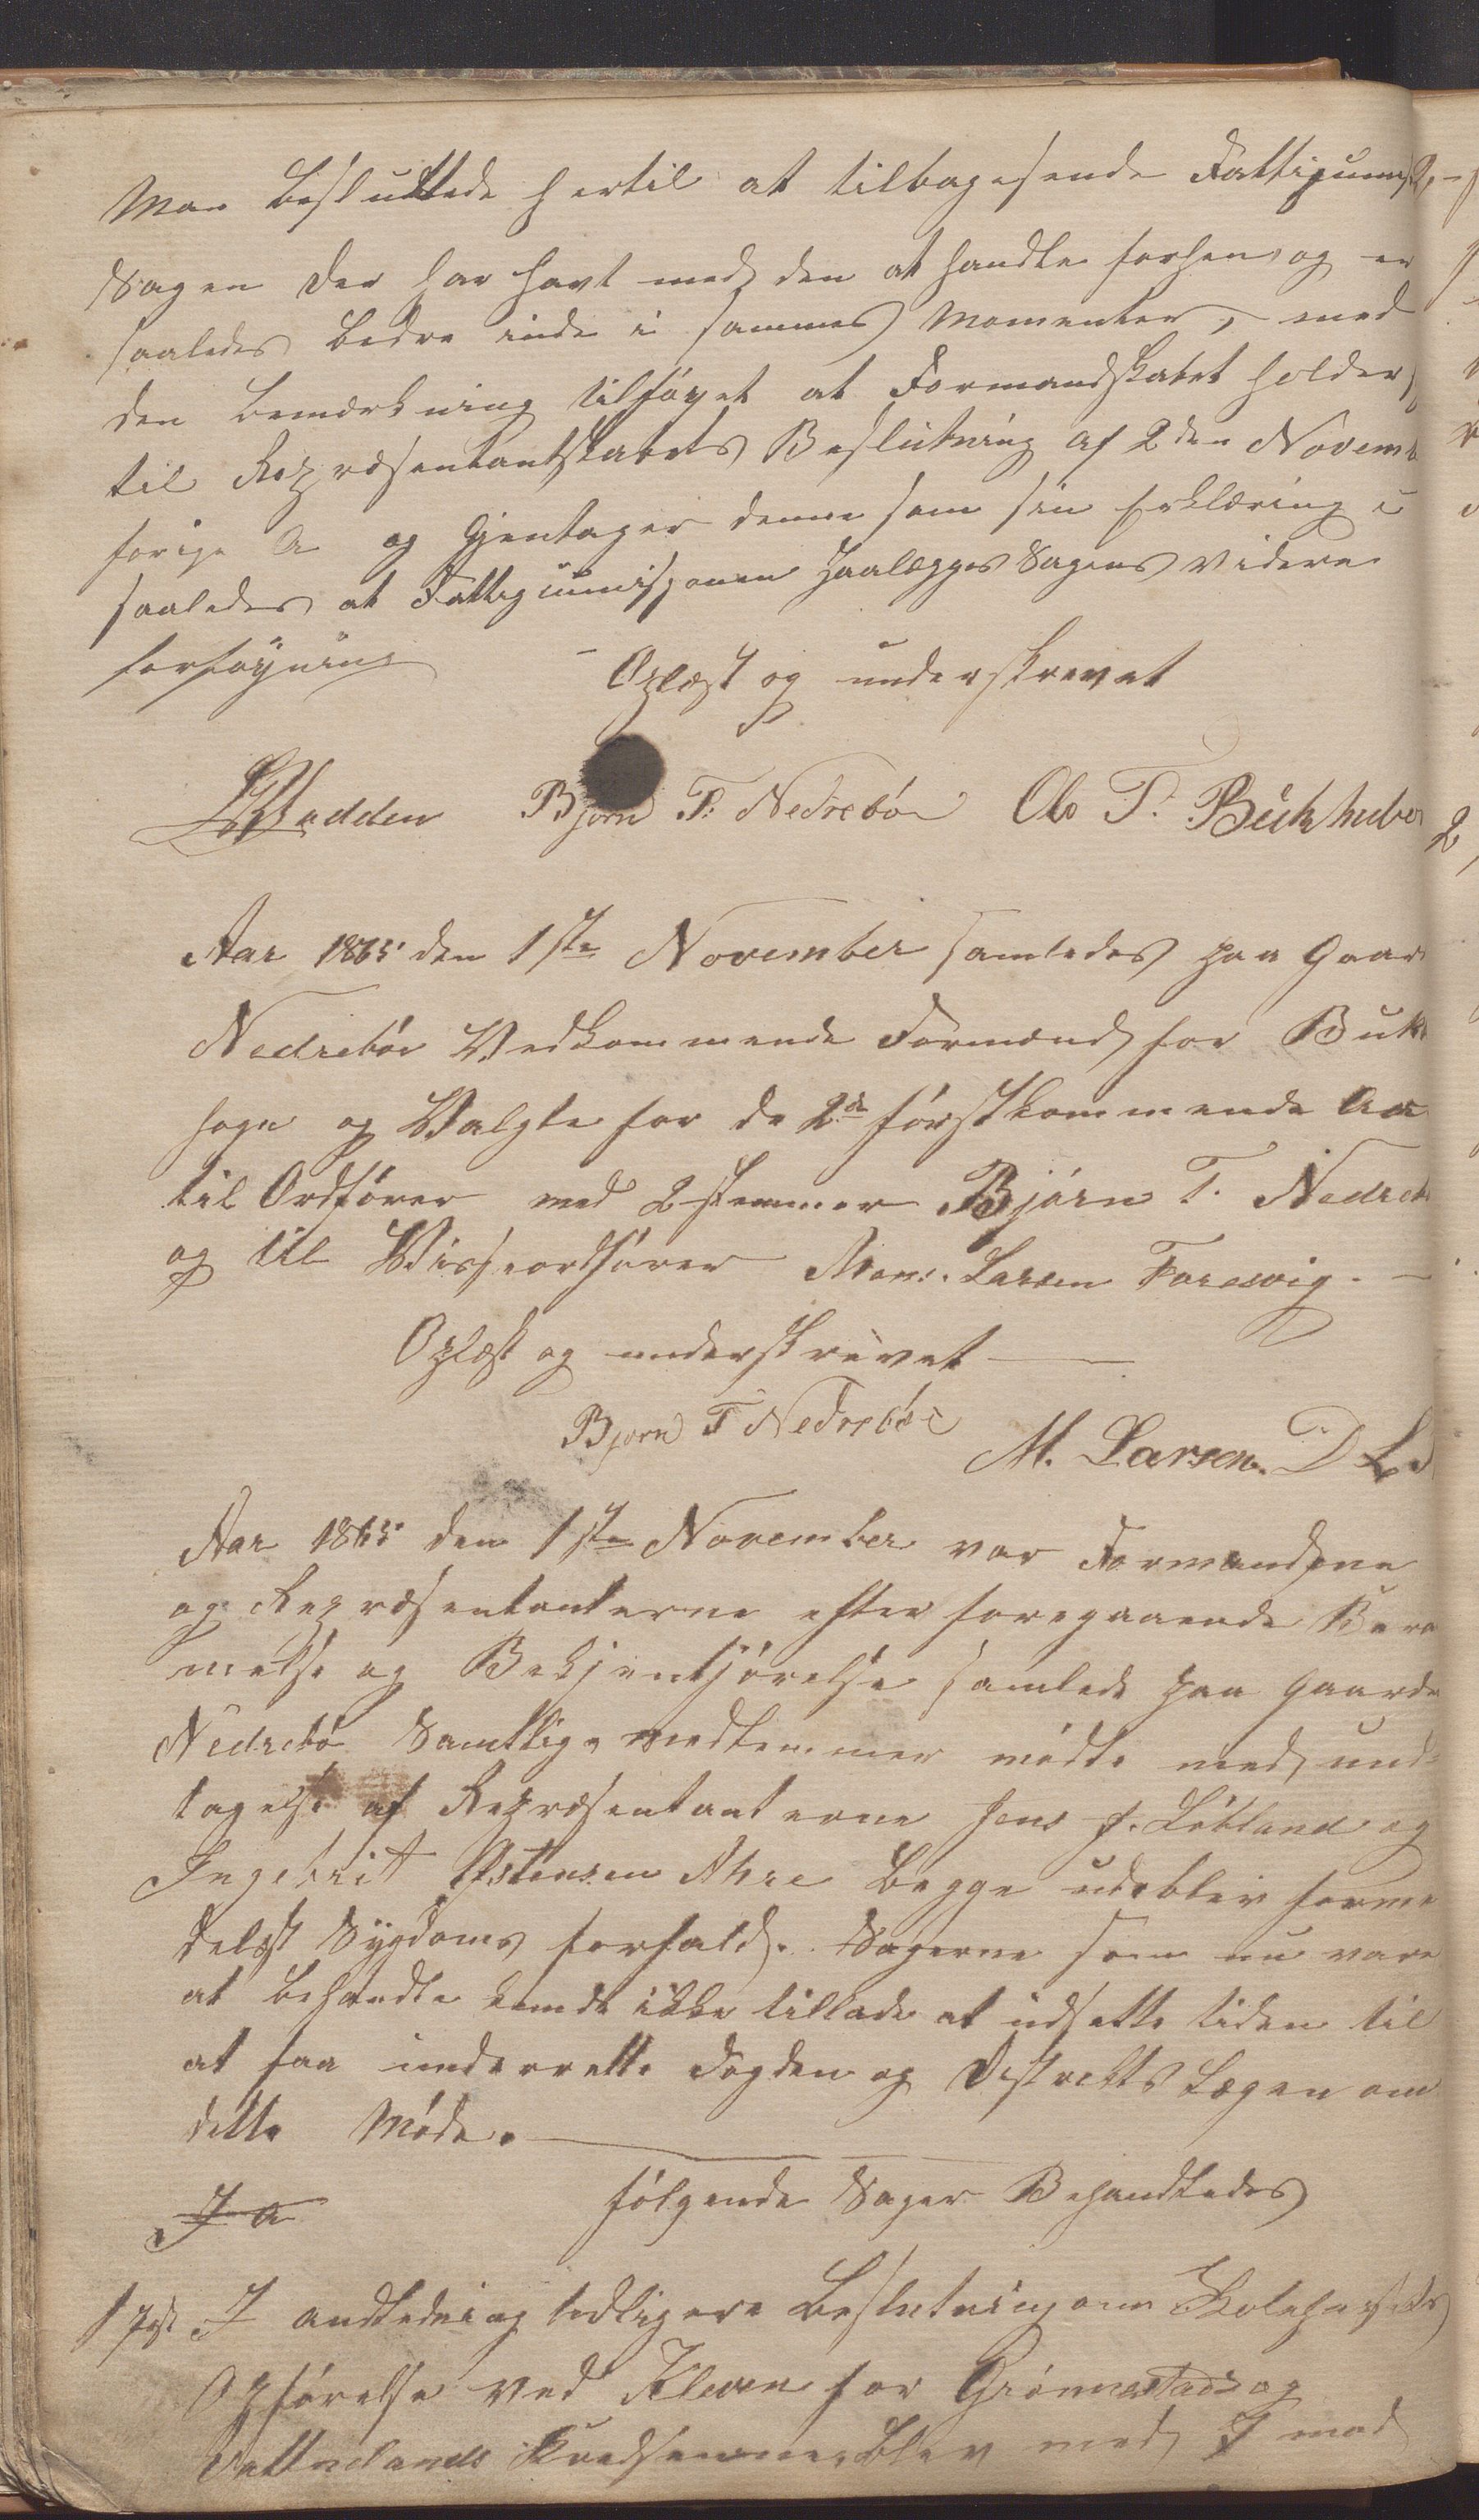 Man besluttede hertil at tilbagesende Fattigcomis
Sagen der har havt med den at handle forhen og er
saaledes bedre inde i sammes Momenter, med
den bemærkning tilføyet at Formandskabet holder
til Repræsentantskabets Beslutning af 2den Novemb
forige A og Gjentager denne som sin Erklæring i
saaledes at Fattigcomissionen paalægges Sagens videre
forføyning
Oplæst og underskrevet
Bjørn T. Nedrebø Ole T.
Aar 1865 den 1ste November samledes paa Gaar
Nedrebøe Vedkommende Formænd for Buk
sogn og Valgte for de 2de førstkommende Aa
til Ordfører med 2 stemmer Bjørn T. Nedreb
og til Viseordfører Mons. Larsen Faresvig. —
Oplæst og underskrevet —
Bjørn T Nedrebøe
M. Larsen. D L
Aar 1865 den 1ste November var Formændene
og Repræsentanterne efter foregaaende Bera
melse og Bekjentjørelse samlede paa Gaarde
Nedrebø Samtlige medlemmer mødte med und
tagelse af Repræsentanterne Jens J. Løtland og
Ingebrit Østensen Ahre begge udeblev forme
delst Sygdoms forfald. Sagerne som nu vare
at behandle kunde ikke tillade at udsette tiden til
at faa underrette Fogden og Distrikts Lægen om
dette Møde. —
I a
følgende Sager Behandledes
1 post I andledning tidligere beslutning om Skolehusets
Opførelse ved Kleven for Grønnestads og
Vettelands Kredserne, blev med 7 mod